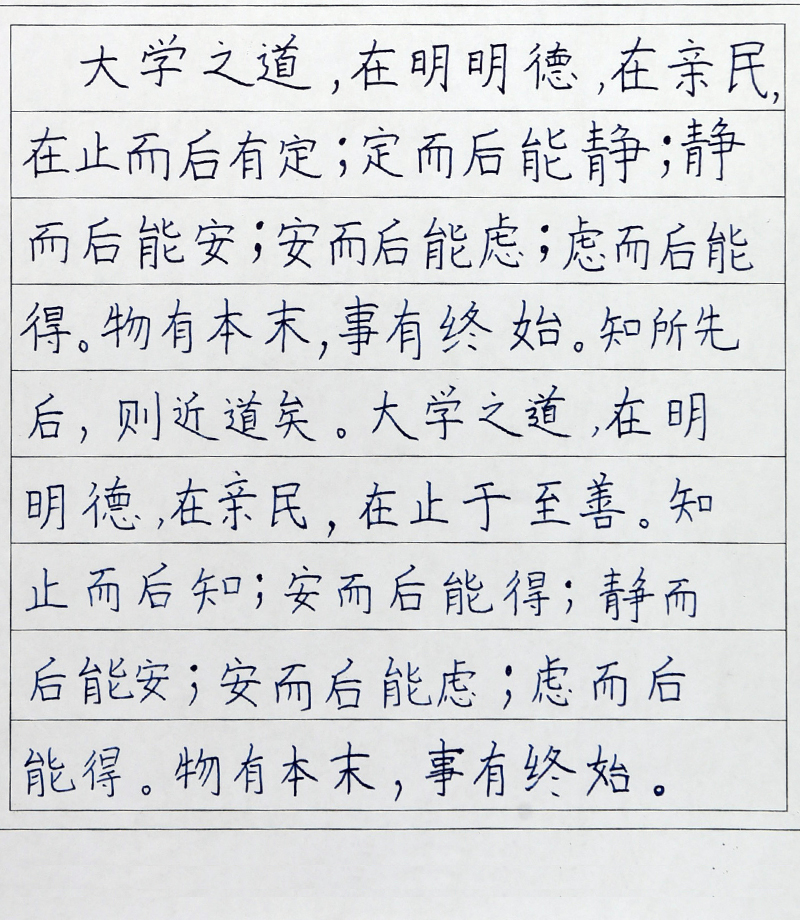 大学之道,在明明德,在亲民,
在止而后有定;定而后能静;静
而后能安;安而后能虑;虑而后能
得。物有本末,事有终始。知所先
后,则近道矣。大学之道,在明
明德,在亲民,在止于至善。知
止而后知;安而后能得;静而
后能安;安而后能虑;虑而后
能得。物有本末,事有终始。